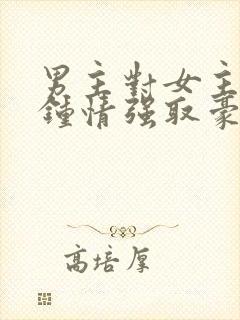 男主對女主
鍾情強取豪
高培厚